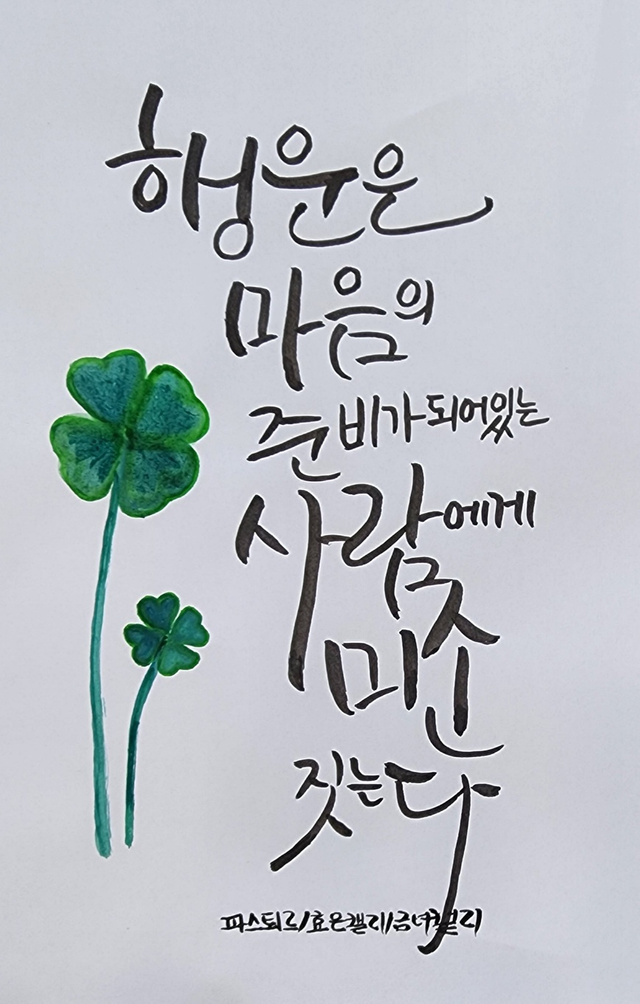 행운은
마음의
준비가 되어있는
사람에게
미소
짓는다
파스퇴르/효은캘리/금너캘리